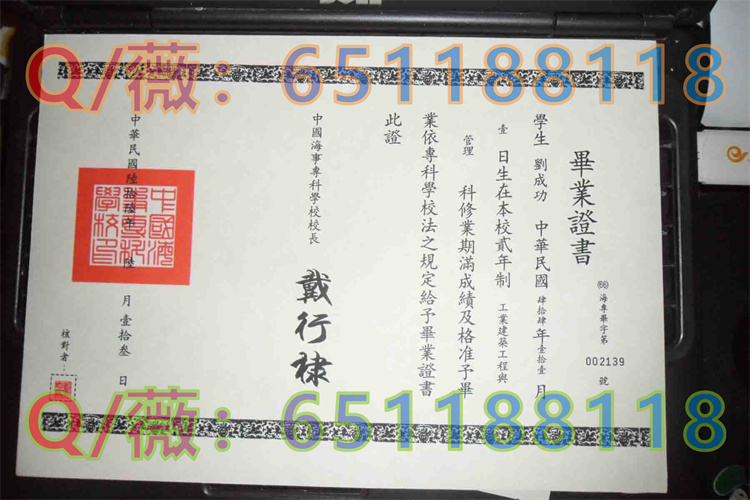 Q/薇：651188118
畢業證書
(66)海專畢字第 002139 號
學生 劉成功 中華民國 肆拾肆 年 壹拾壹 月
壹 日生在本校貳年制 工業建築工程與
管理 科修業期滿成績及格准予畢
業依專科學校法之規定給予畢業證書
此證
中國海事專科學校校長
戴行禄
中華民國 陸拾 年 陸 月 壹拾叁 日
中國海事專科學校印
核對者：
Q/薇：651188118